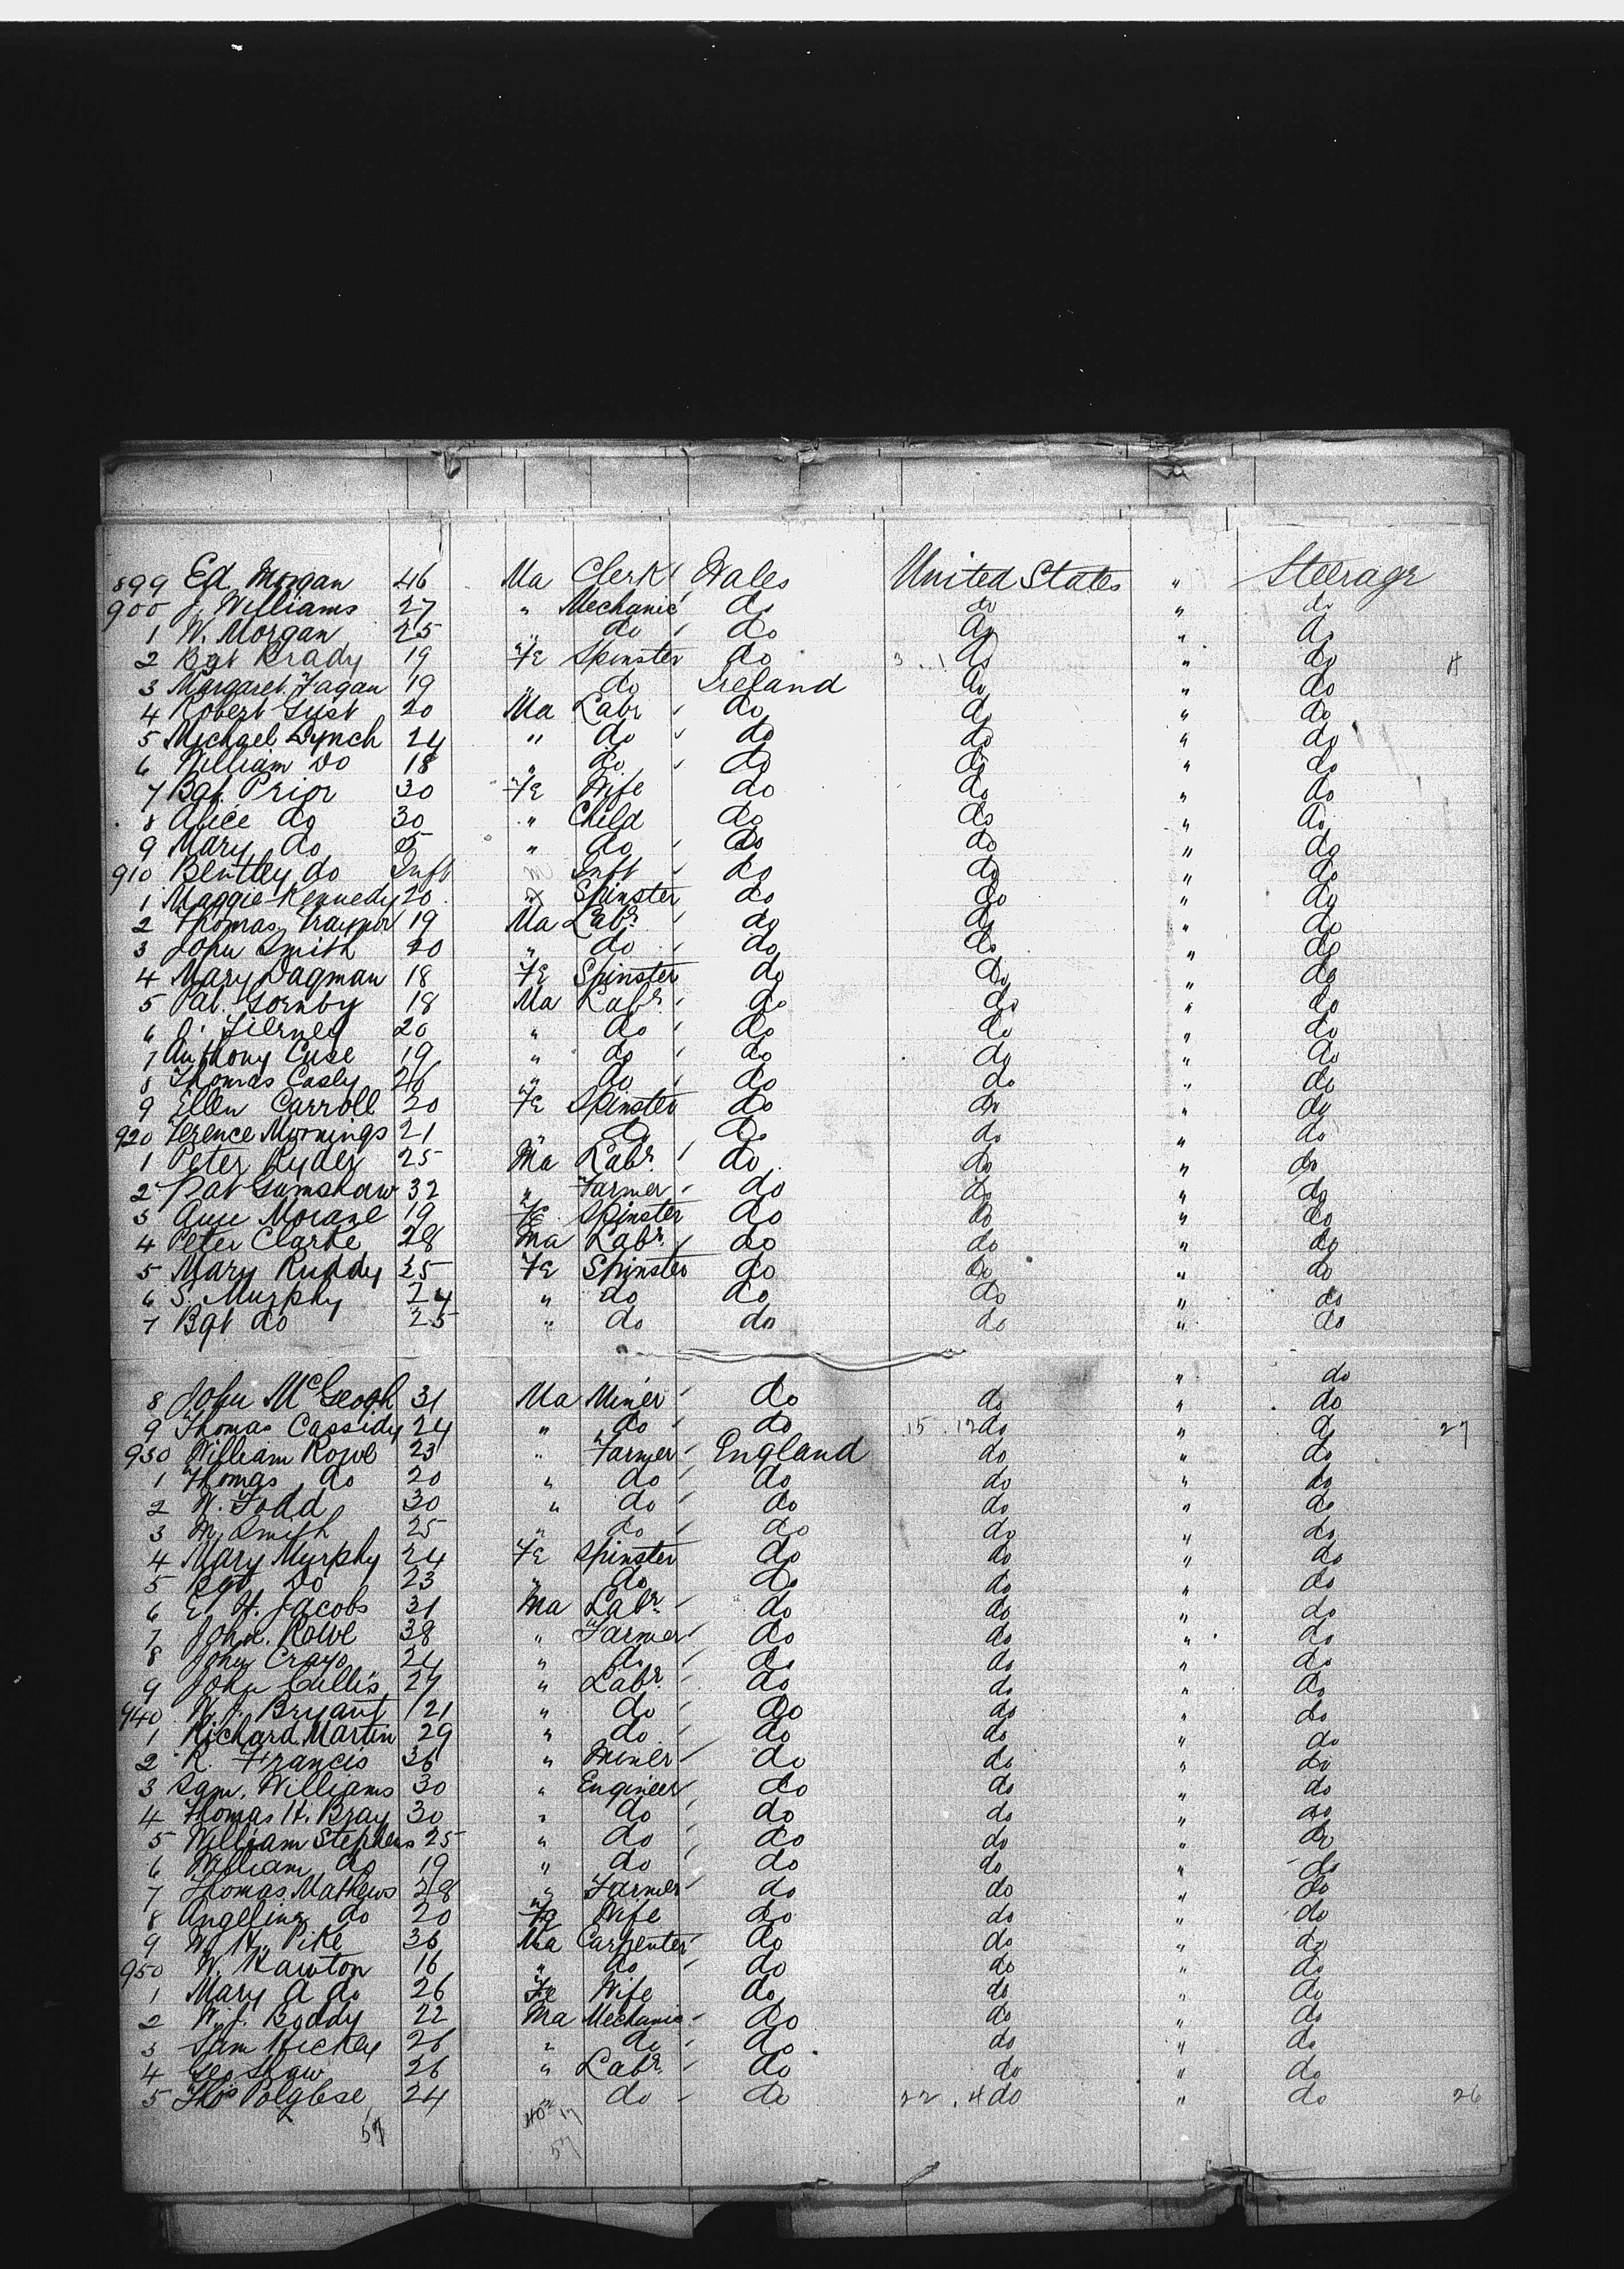 899 Ed Morgan 46 Ma Clerk Wales United States " Steerage
900 J. Williams 27 " Mechanic do do " do
1 W. Morgan 25 " do do do " do
2 Bgt Brady 19 Fe Spinster do 3 . 1 do " do 4
3 Margaret Fagan 19 " do Ireland do " do
4 Robert Gust 20 Ma Labr do do " do
5 Michael Lynch 24 " do do do " do
6 William Do 18 " do do do " do
7 Bgt Prior 30 Fe Wife do do " do
8 Alice do 30 " Child do do " do
9 Mary do 5 " do do do " do
910 Bentley do Inft m Inft do do " do
1 Maggie Kennedy 20 Spinster do do " do
2 Thomas Traynor 19 Ma Labr do do " do
3 John Smith 20 " do do do " do
4 Mary Dagman 18 Fe Spinster do do " do
5 Pat Gornby 18 Ma Labr do do " do
6 Tierney 20 " do do do " do
7 Anthony Cuse 19 " do do do " do
8 Thomas Casly 26 " do do do " do
9 Ellen Carroll 20 Fe Spinster do do " do
920 Terence Mornings 21 " do do do " do
1 Peter Ryder 25 Ma Labr do do " do
2 Pat Gumshaw 32 " Farmer do do " do
3 Ann Morane 19 Fe Spinster do do " do
4 Peter Clarke 28 Ma Labr do do " do
5 Mary Ruddy 25 Fe Spinster do do " do
6 S. Murphy 24 " do do do " do
7 Bgt do 25 " do do do " do
" do
8 John McGeogh 31 Ma Miner do do " do
9 Thomas Cassidy 24 " do do 15 . 12 do " do 27
930 William Rowe 23 " Farmer England do " do
1 Thomas do 20 " do do do " do
2 W. Todd 30 " do do do " do
3 M. Smith 25 " do do do " do
4 Mary Murphy 24 Fe Spinster do do " do
5 Bgt Do 23 " do do do " do
6 E. H. Jacobs 31 Ma Labr do do " do
7 John Rowe 38 " Farmer do do " do
8 John Crays 24 " do do do " do
9 John Cullis 27 " Labr do do " do
940 W. J. Bryant 21 " do do do " do
1 Richard Martin 29 " do do do " do
2 R. Francis 36 " Miner do do " do
3 Sam. Williams 30 " Engineer do do " do
4 Thomas H. Bray 30 " do do do " do
5 William Stephens 25 " do do do " do
6 William do 19 " do do do " do
7 Thomas Mathews 28 " Farmer do do " do
8 Angelina do 20 Fe Wife do do " do
9 W. H. Pike 36 Ma Carpenter do do " do
950 W. Hawton 16 " do do do " do
1 Mary A do 26 Fe Wife do do " do
2 W. J. Boddy 22 Ma Mechanic do do " do
3 Sam Hickey 26 " do do do " do
4 Geo Shaw 26 " Labr do do " do
5 Thos Polglese 24 do do 22 . 4 do " do 26
57 40 17
57